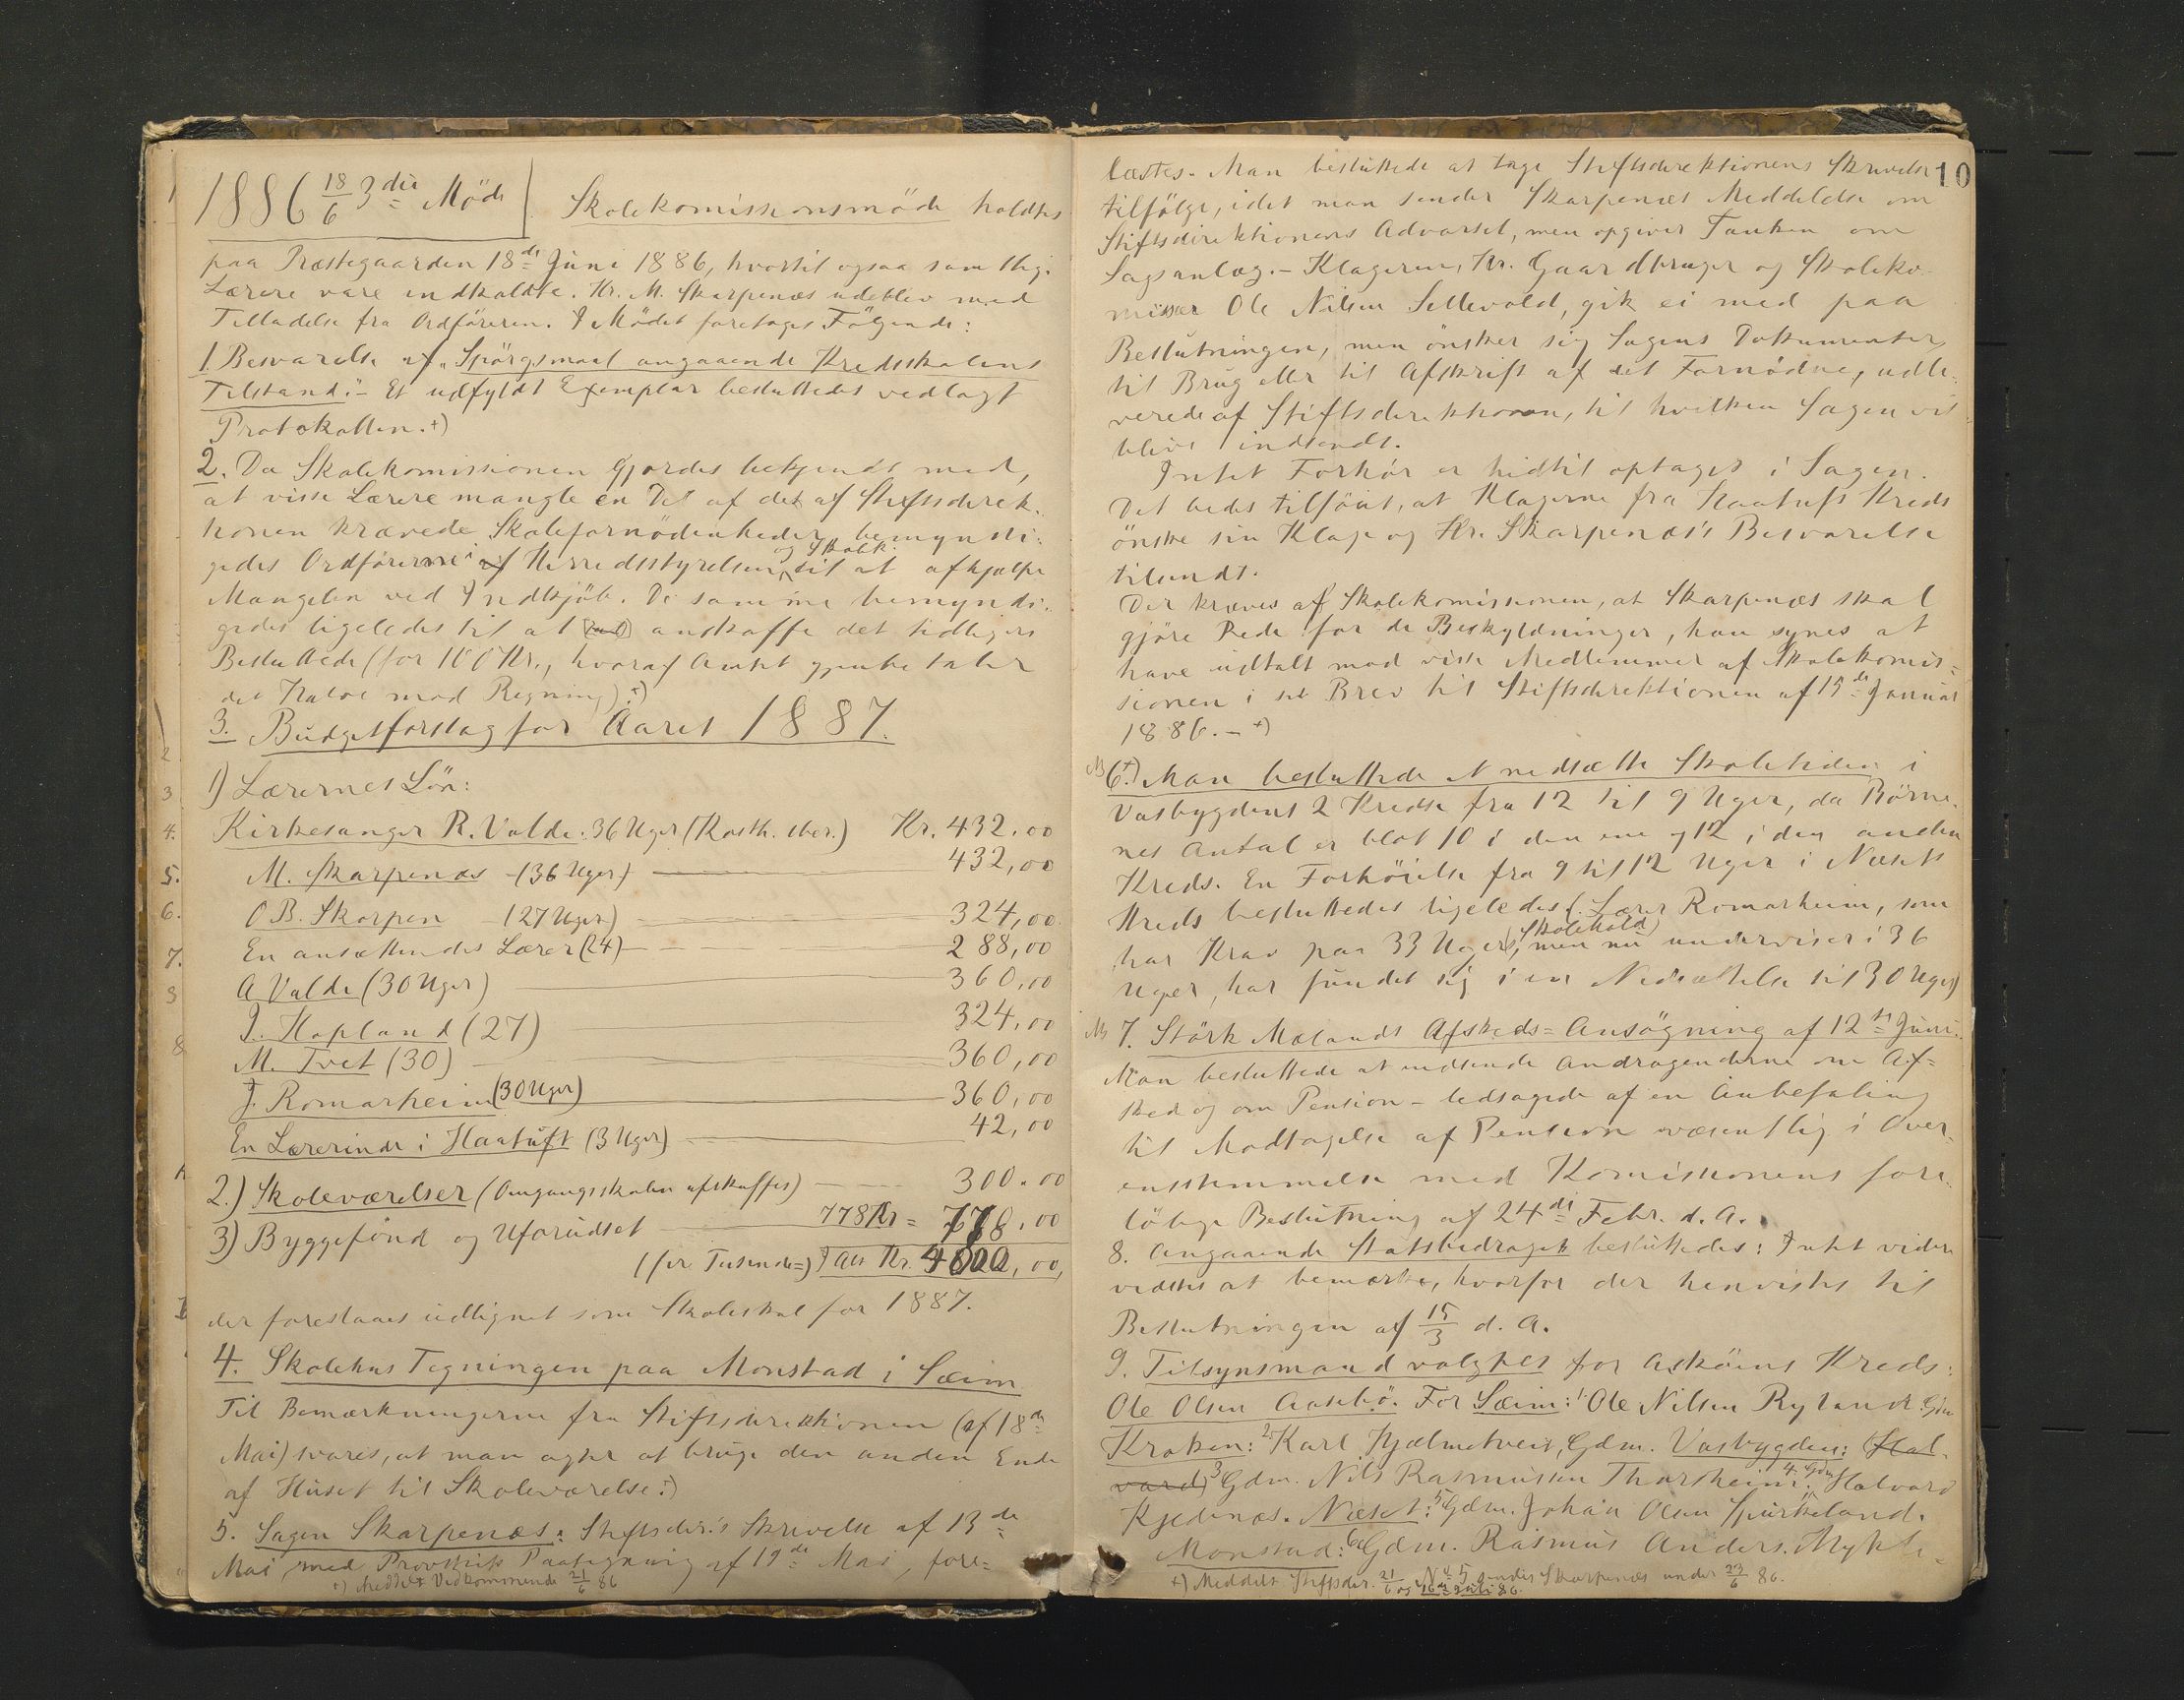 1886 18/6 3die Möde | Skolekomissionsmöde holdtes
paa Præstegaarden 18de Juni 1886, hvortil ogsaa samtlige
Lærere vare indkaldte. Hr. M. Skarpenæs udeblev med
Tilladelse fra Ordföreren. I Mödet foretoges Fölgende:
1. Besvarelse af „Spörgsmaal angaaende Kredsskolens
Tilstand.“ – Et udfyldt Exemplar besluttedes vedlagt
Protokollen. +)
2. Da Skolekomissionen gjordes bekjendt med,
at visse Lærere mangle en Del af det af Stiftsdirek-
tionen krævede Skolefornödenheder, bemyndi-
gedes Ordförerne i af Herredsstyrelsen og Skolek. til at afhjælpe
Mangelen ved Indkjöb. De samme bemyndi-
gedes ligeledes til at anskaffe det tidligere
Besluttede (for 100 Kr., hvoraf Amtet gjenbetaler
det Halve mod Regning). +)
3. Budgetforslag for Aaret 1887.
1) Lærernes Lön:
Kirkesanger R. Valde. 36 Uger (Kosth. iber.) Kr. 432,00
M. Skarpenæs (36 Uger) 432,00
O B. Skarpen (27 Uger) 324,00
En ansættendes Lærer (24) 288,00
A Valde (30 Uger) 360,00
J. Hopland (27) 324,00
M. Tvet (30) 360,00
J. Romarheim (30 Uger) 360,00
En Lærerinde i Haatuft (3 Uger) 42,00
2.) Skoleværelser (Omgangsskolen afskaffes) 300.00
3) Byggefond og Uforudset 778 Kr = 778,00
(fire Tusende =) I Alt Kr. 4000,00,
der foreslaaes udlignet som Skoleskat for 1887.
4. Skolehus Tegningen paa Monstad i Sæim
Til Bemærkningerne fra Stiftsdirektionen (af 18de
Mai) svares, at man agter at bruge den anden Ende
af Huset til Skoleværelse. +)
5. Sagen Skarpenæs: Stiftsdir.s Skrivelse af 13de
Mai med Provstiets Paategning af 19de Mai, fore=
+) Meddelt Vedkommende 21/6 86
10
læstes. Man besluttede at tage Stiftsdirektionens Skrivelse
tilfölge, idet man sender Skarpenæs Meddelelse om
Stiftsdirektionens Advarsel, men opgiver Tanken om
Sagsanlæg. – Klageren, Hr. Gaardbruger og Skoleko-
missær Ole Nilsen Sellevold, gik ei med paa
Beslutningen, men önsker sig Sagens Dokumenter,
til Brug eller til Afskrift af det Fornödne, udle-
verede af Stiftsdirektionen, til hvilken Sagen vil
blive indsendt.
Intet Forhör er hidtil optaget i Sagen.
Det bedes tilföiet, at Klagerne fra Haatufts Kreds
önske sin Klage og Hr. Skarpenæs's Besvarelse
tilsendt.
Der kræves af Skolekomissionen, at Skarpenæs skal
gjöre Rede for de Beskyldninger, han synes at
have udtalt mod visse Medlemmer af Skolekomis=
sionen i sit Brev til Stiftsdirektionen af 15de Januar
1886. – +)
6. +) Man besluttede at nedsætte Skoletiden i
Vasbygdens 2 Kredse fra 12 til 9 Uger, da Börne-
nes Antal er blot 10 i den ene og 12 i den anden
Kreds. En Forhöielse fra 9 til 12 Uger i Næsets
Kreds besluttedes ligeledes (. Lærer Romarheim, som
har Krav paa 33 Ugers Skolehold, men nu underviser i 36
Uger, har fundet sig i en Nedsættelse til 30 Uger)
7. Störk Mælands Afskeds=Ansögning af 12te Juni.
Man besluttede at indsende Andragenderne om Af=
sked og om Pension – ledsagede af en Anbefaling
til Modtagelse af Pension væsentlig i Over-
ensstemmelse med Komissionens fore-
löbige Beslutning af 24de Febr. d. A.
8. Angaaende Statsbidraget besluttedes: Intet videre
vidstes at bemærke, hvorfor der henvistes til
Beslutningen af 15/3 d. A.
9. Tilsynsmænd valgtes for Asköens Kreds:
Ole Olsen Aasebö. For Sæim: 1. Ole Nilsen Ryland. Gdm
Kroken: 2. Karl Hjelmetveit, Gdm. Vasbygden: (Hal-
vard) 3 Gdm. Nils Rasmussen Thorsheim. 4. Gdm Halvard
Kjedenæs. Næset: 5 Gdm. Johan Olsen Spurkeland.
Monstad: 6 Gdm. Rasmus Anders. Mykle-
+) Meddelt Stiftsdir. 21/6 og 16de Juli 86. No 5 sendes Skarpenæs under 23/6 86.